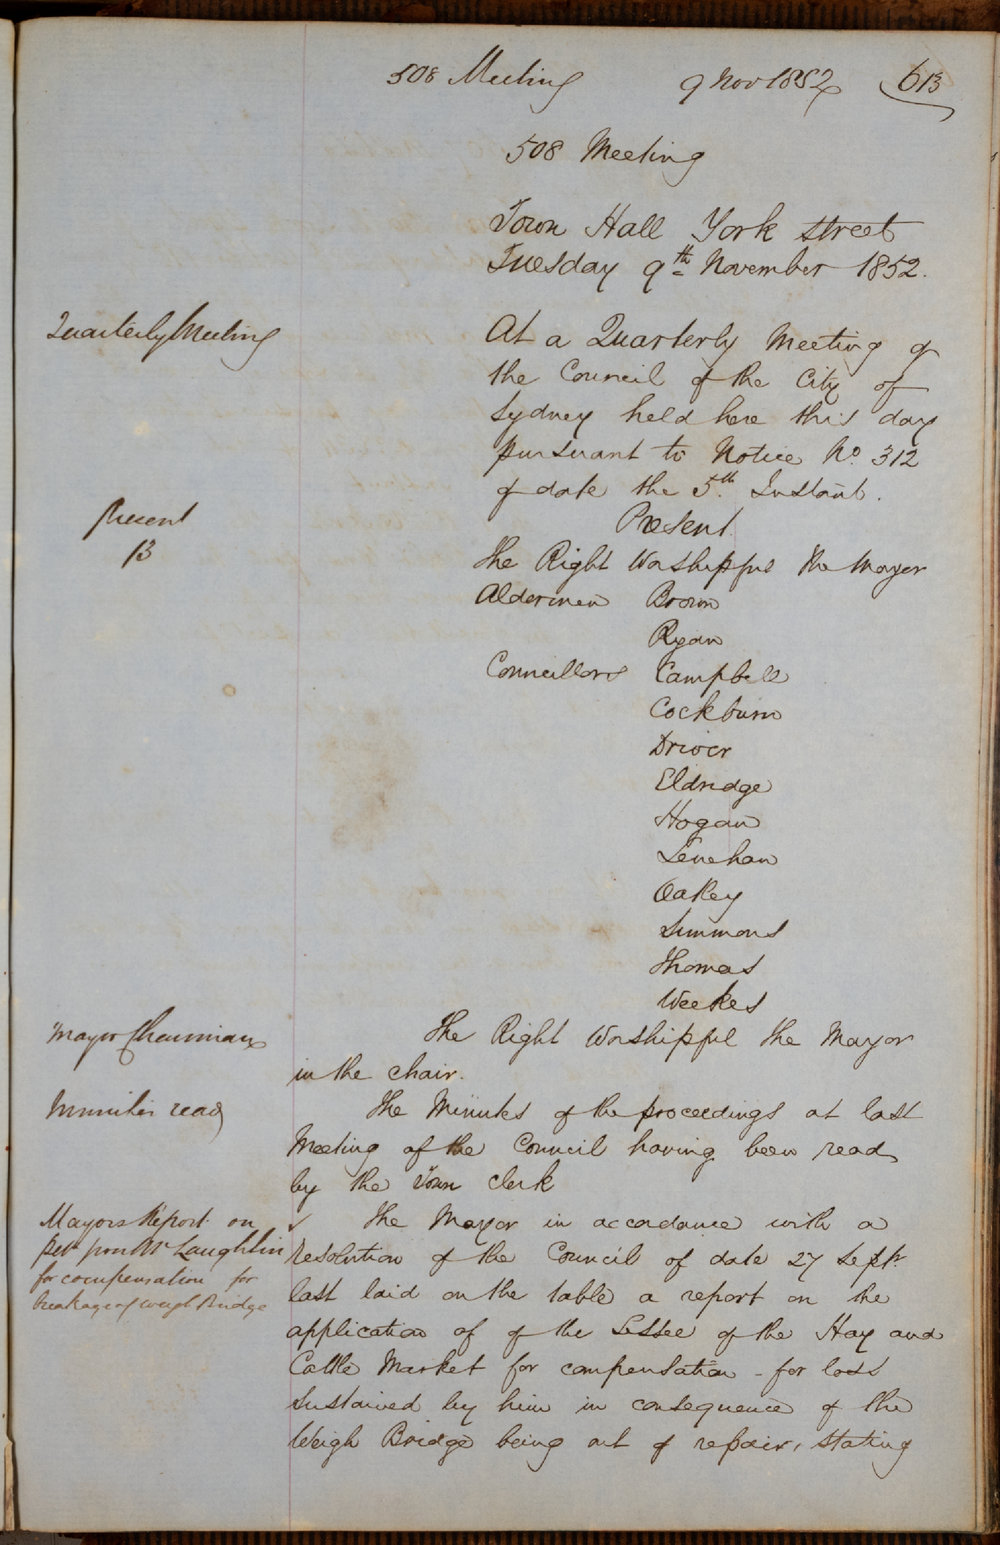 508 Meeting 9 Nov 1852 613
508 Meeting
Town Hall York street
Tuesday 9th November 1852.
Quarterly Meeting
At a Quarterly Meeting of
the Council of the City of
Sydney held here this day
pursuant to Notice No. 312
of date the 5th. Instant.
Present
13
Present.
The Right Worshipful the Mayor
Aldermen Brown
Ryan
Councillors Campbell
Cockburn
Driver
Eldridge
Hogan
Lenehan
Oakey
Simmons
Thomas
Weekes
Mayor Chairman
The Right Worshipful the Mayor
in the chair.
Minutes read
The Minutes of the proceedings at last
Meeting of the Council having been read
by the Town Clerk
Mayors Report on
Petn from Mc Laughlin
for compensation for
breakage of weigh Bridge
The Mayor in accordance with a
resolution of the Council of date 27 Septr
last laid on the table a report on the
application of of the Lessee of the Hay and
Cattle Market for compensation - for loss
sustained by him in consequence of the
Weigh Bridge being out of repair, stating